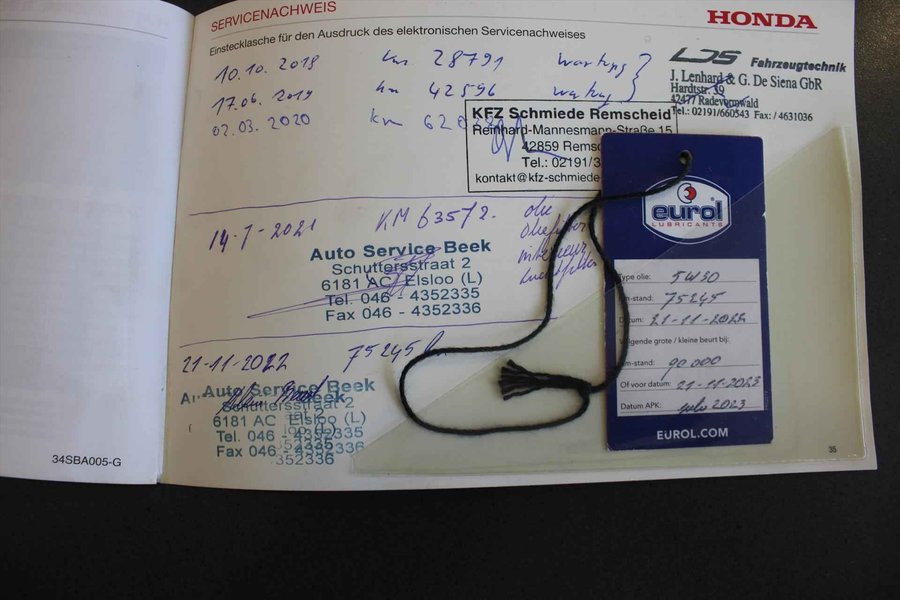 SERVICENACHWEIS
HONDA
Einstecklasche für den Ausdruck des elektronischen Servicenachweises
10.10.2018 km 28791 Wartung
17.06.2019 km 42596 Wartung
02.03.2020 km
LDS Fahrzeugtechnik
J. Lenhard & G. De Siena GbR
Hardtstr. 39
42477 Radevormwald
Tel.: 02191/660543 Fax: / 4631036
KFZ Schmiede Remscheid
Reinhard-Mannesmann-Straße 15
42859 Remsc
Tel.: 02191/3
kontakt@kfz-schmiede
14-7-2021 KM 63572.
Auto Service Beek
Schuttersstraat 2
6181 AC Elsloo (L)
Tel. 046 - 4352335
Fax 046 - 4352336
21-11-2022 75245
Auto Service Beek
Schuttersstraat 2
6181 AC Elsloo (L)
Tel. 046 - 4352335
Fax 046 - 4352336
eurol
LUBRICANTS
Type olie: 5W30
km-stand: 75245
Datum: 21-11-2022
Volgende grote / kleine beurt bij:
km-stand: 90000
Of voor datum: 21-11-2023
Datum APK: july 2023
EUROL.COM
34SBA005-G
35